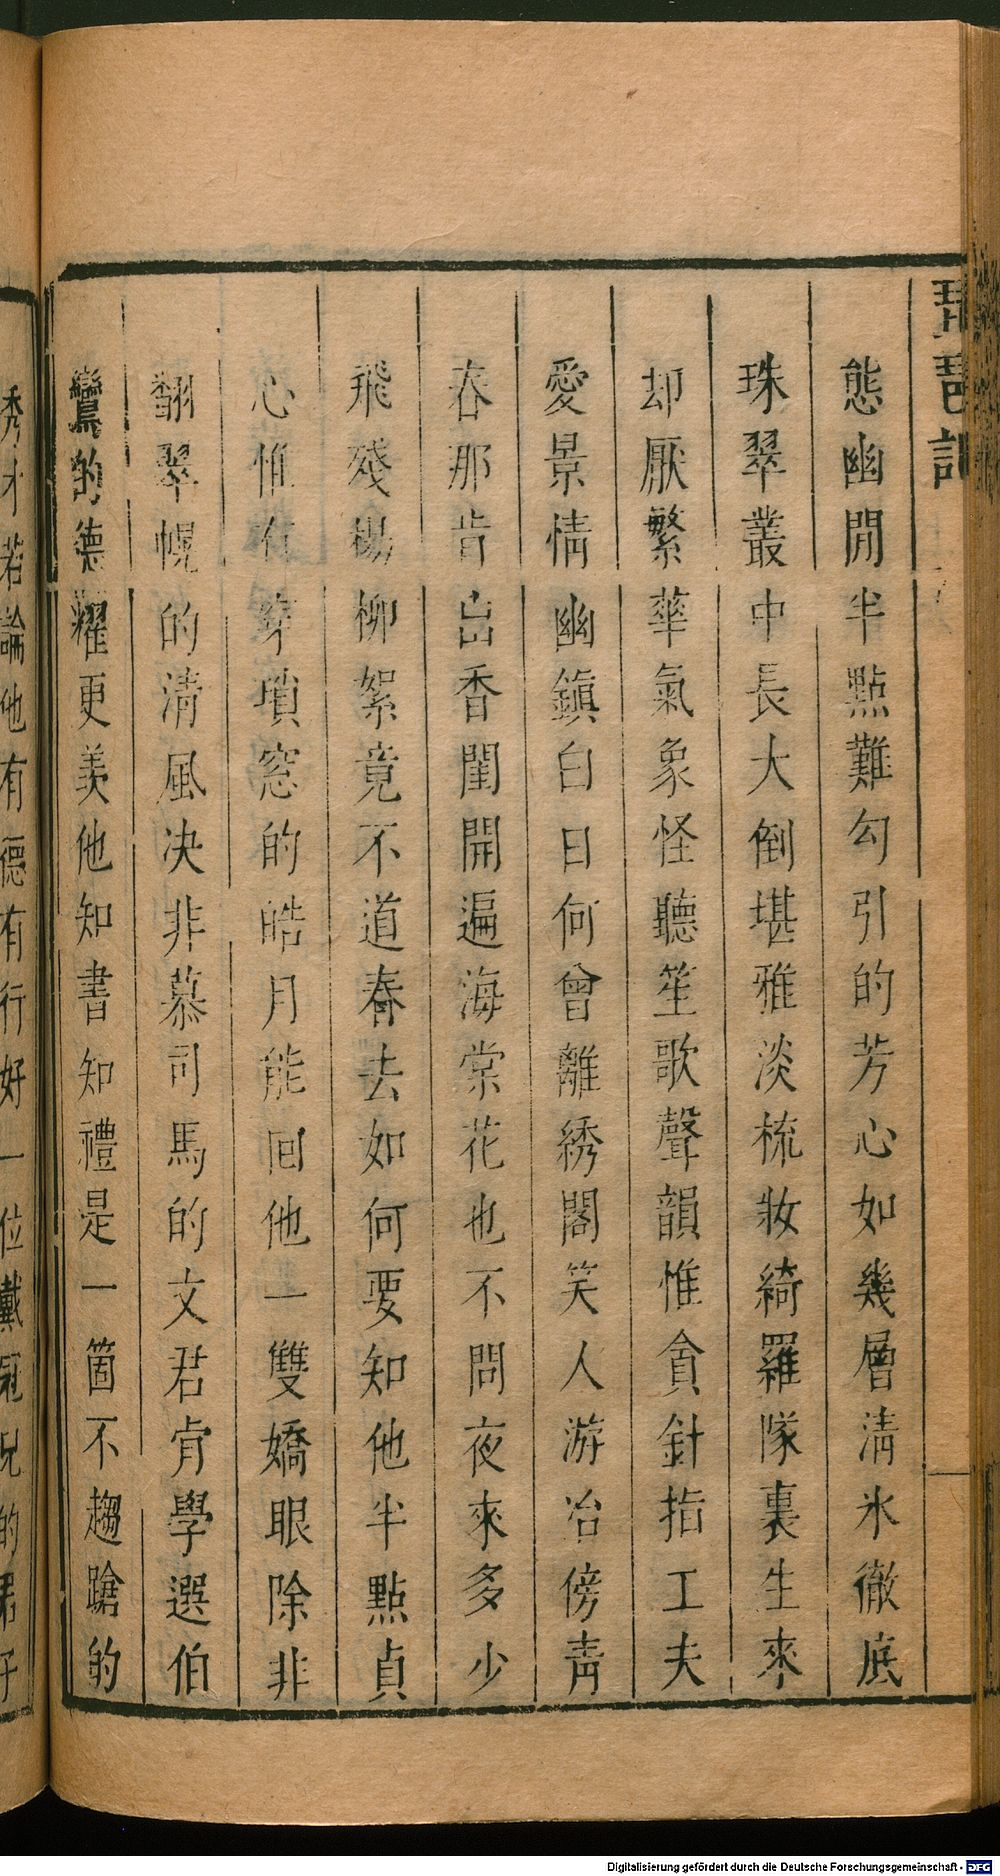 琵琶記
態幽閒半點難勾引的芳心如幾層清氷徹底
珠翠叢中長大倒堪雅淡梳妝綺羅隊裏生來
却厭繁華氣象怪聽笙歌聲韻惟貪針指工夫
愛景情幽鎮白日何曾離綉閣笑人游冶傍靑
春那肯出香閨開遍海棠花也不問夜來多少
飛殘楊柳絮竟不道春去如何要知他半點貞
心惟有穿瑣窓的皓月能回他一雙嬌眼除非
翻翠幌的清風决非慕司馬的文君肯學選伯
鸞的德耀更羡他知書知禮是一箇不趨蹌的
秀才若論他有德有行好一位戴冠兒的君子
Digitalisierung gefördert durch die Deutsche Forschungsgemeinschaft - DFG